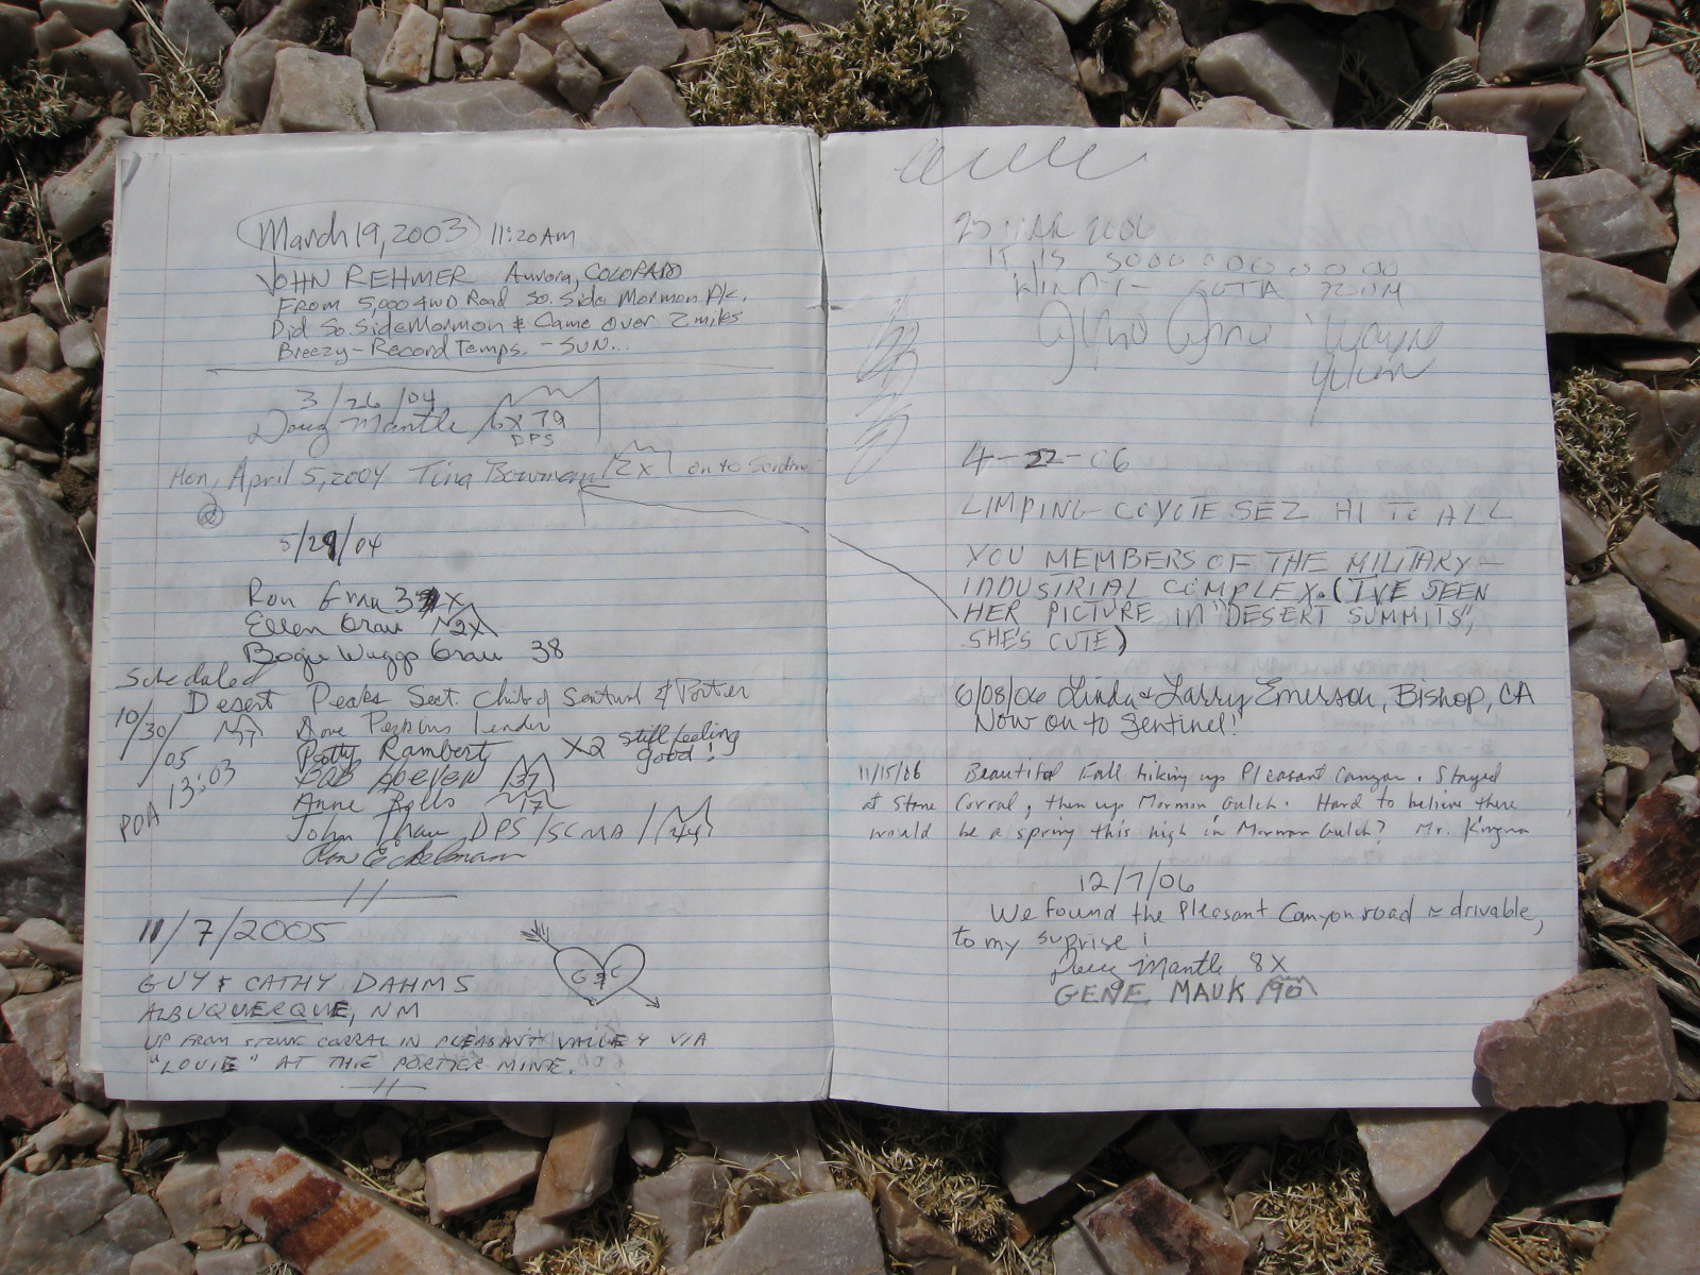 March 19, 2003 11:20 AM
JOHN REHMER Aurora, COLORADO
From 5,000 4WD Road So. Side Mormon Pk.
Did So. Side Mormon & Came over 2 miles
Breezy - Record Temps. - SUN...
3/26/04
Doug Mantle 6x 79
DPS
Mon, April 5, 2004 Tina Bowman 2x on to
5/29/04
Ron Grau 3 x
Ellen Grau 2x
Bogie Wuggo Grau 38
Scheduled
Desert Peaks Sect. Climb of Sentinel & Porter
10/30/05
Dave Perkins Leader
Patty Rambert X2 still feeling good!
37
Anne Rolls 17
13:03
POA
John DPS/SCMA/
Ron Eckelmann
11/7/2005
GUY & CATHY DAHMS
G & C
ALBUQUERQUE, NM
UP FROM STONE CORRAL IN PLEASANT VALLEY VIA
"LOUIE" AT THE PORTER MINE.
MAR 2006
IT IS
WINDY - GOTTA
Wayne
4-22-06
LIMPING COYOTE SEZ HI TO ALL
YOU MEMBERS OF THE MILITARY -
INDUSTRIAL COMPLEX. (I'VE SEEN
HER PICTURE IN "DESERT SUMMITS",
SHE'S CUTE)
6/08/06 Linda & Larry Emerson, Bishop, CA
Now on to Sentinel!
11/15/06 Beautiful Fall hiking up Pleasant Canyon. Stayed
at Stone Corral, then up Mormon Gulch. Hard to believe there
would be a spring this high in Mormon Gulch? Mr.
12/7/06
We found the Pleasant Canyon road ≈ drivable,
to my suprise!
Doug Mantle 8X
GENE MAUK 90